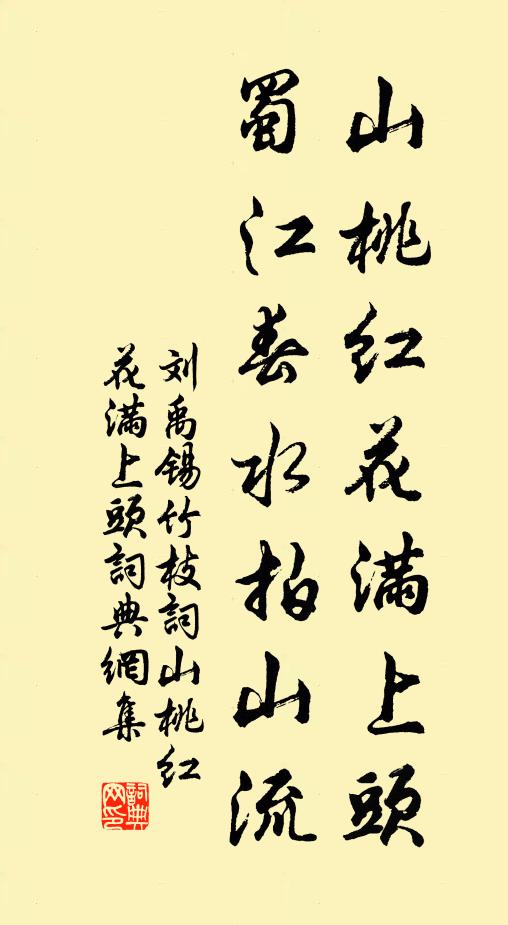 山桃红花满上頭
蜀江春水拍山流
刘禹锡竹枝詞山桃红
花满上頭詞典網集
詞典
网印